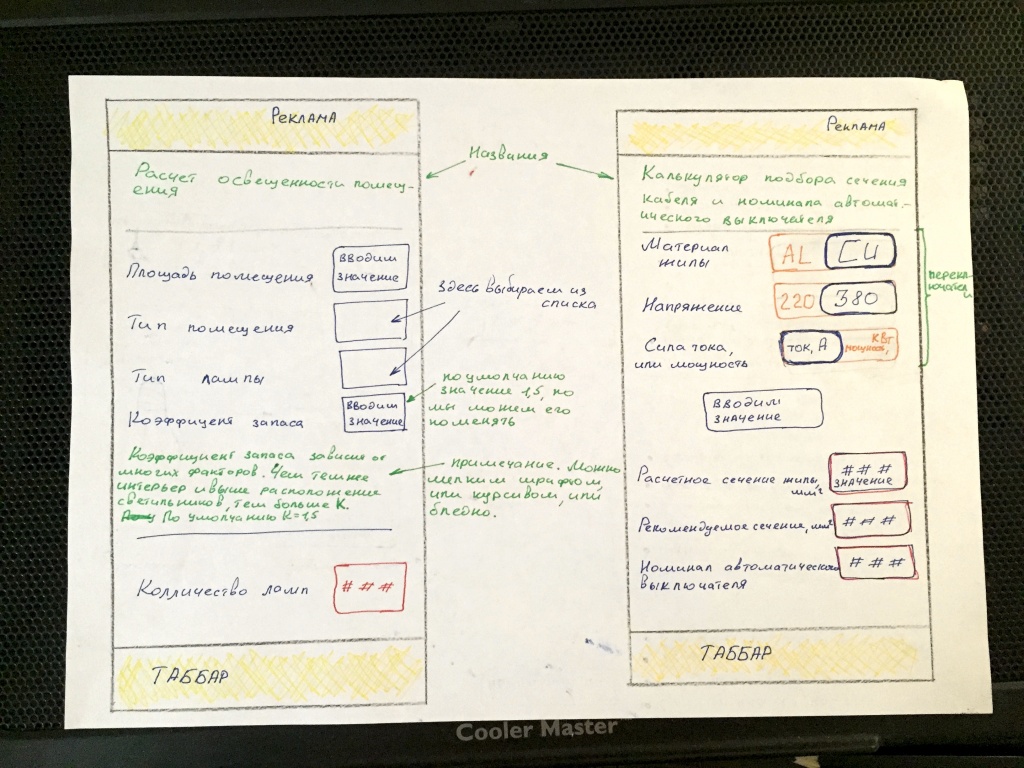 Реклама
Расчет освещенности помещ-
ения
Площадь помещения
вводим
значение
Тип помещения
Тип лампы
Коэффициент запаса
вводим
значение
Коэффициент запаса зависит от
многих факторов. Чем темнее
интерьер и выше расположение
светильников, тем больше К.
По умолчанию К=1,5
Колличество ламп
# # #
ТАББАР
Названия
Здесь выбираем из
списка
по умолчанию
значение 1,5, но
мы можем его
поменять
примечание. Можно
мелким шрифтом,
или курсивом, или
бледно.
Реклама
Калькулятор подбора сечения
кабеля и номинала автомат-
ического выключателя
Материал
жилы
AL
CU
Напряжение
220
380
Сила тока,
или мощность
ток, А
мощность,
КВт
перекл-
ючатели
вводим
значение
Расчетное сечение жилы,
мм²
# # #
значение
Рекомендуемое сечение, мм²
# # #
Номинал автоматического
выключателя
# # #
ТАББАР
Cooler Master